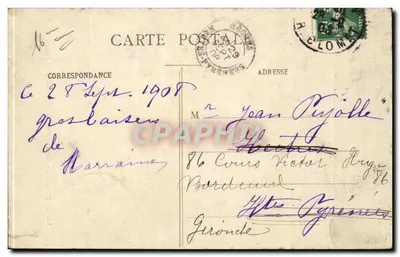 CARTE POSTALE
CORRESPONDANCE
ADRESSE
ce 28 Sept. 1908
gros baisers
de
Marraine
Mr Jean Pujolle
86 Cours Victor Hugo
86
Bordeaux
Htes Pyrénées
Gironde
R. GLOM
CPARAMA